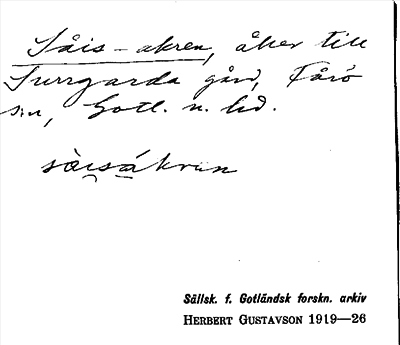 Såis-akren, åker till
Surrgarda gård, Fårö
sn, Gotl. n. hd.
sò̯i̯sákrun
Sällsk. f. Gotländsk forskn. arkiv
HERBERT GUSTAVSON 1919—26